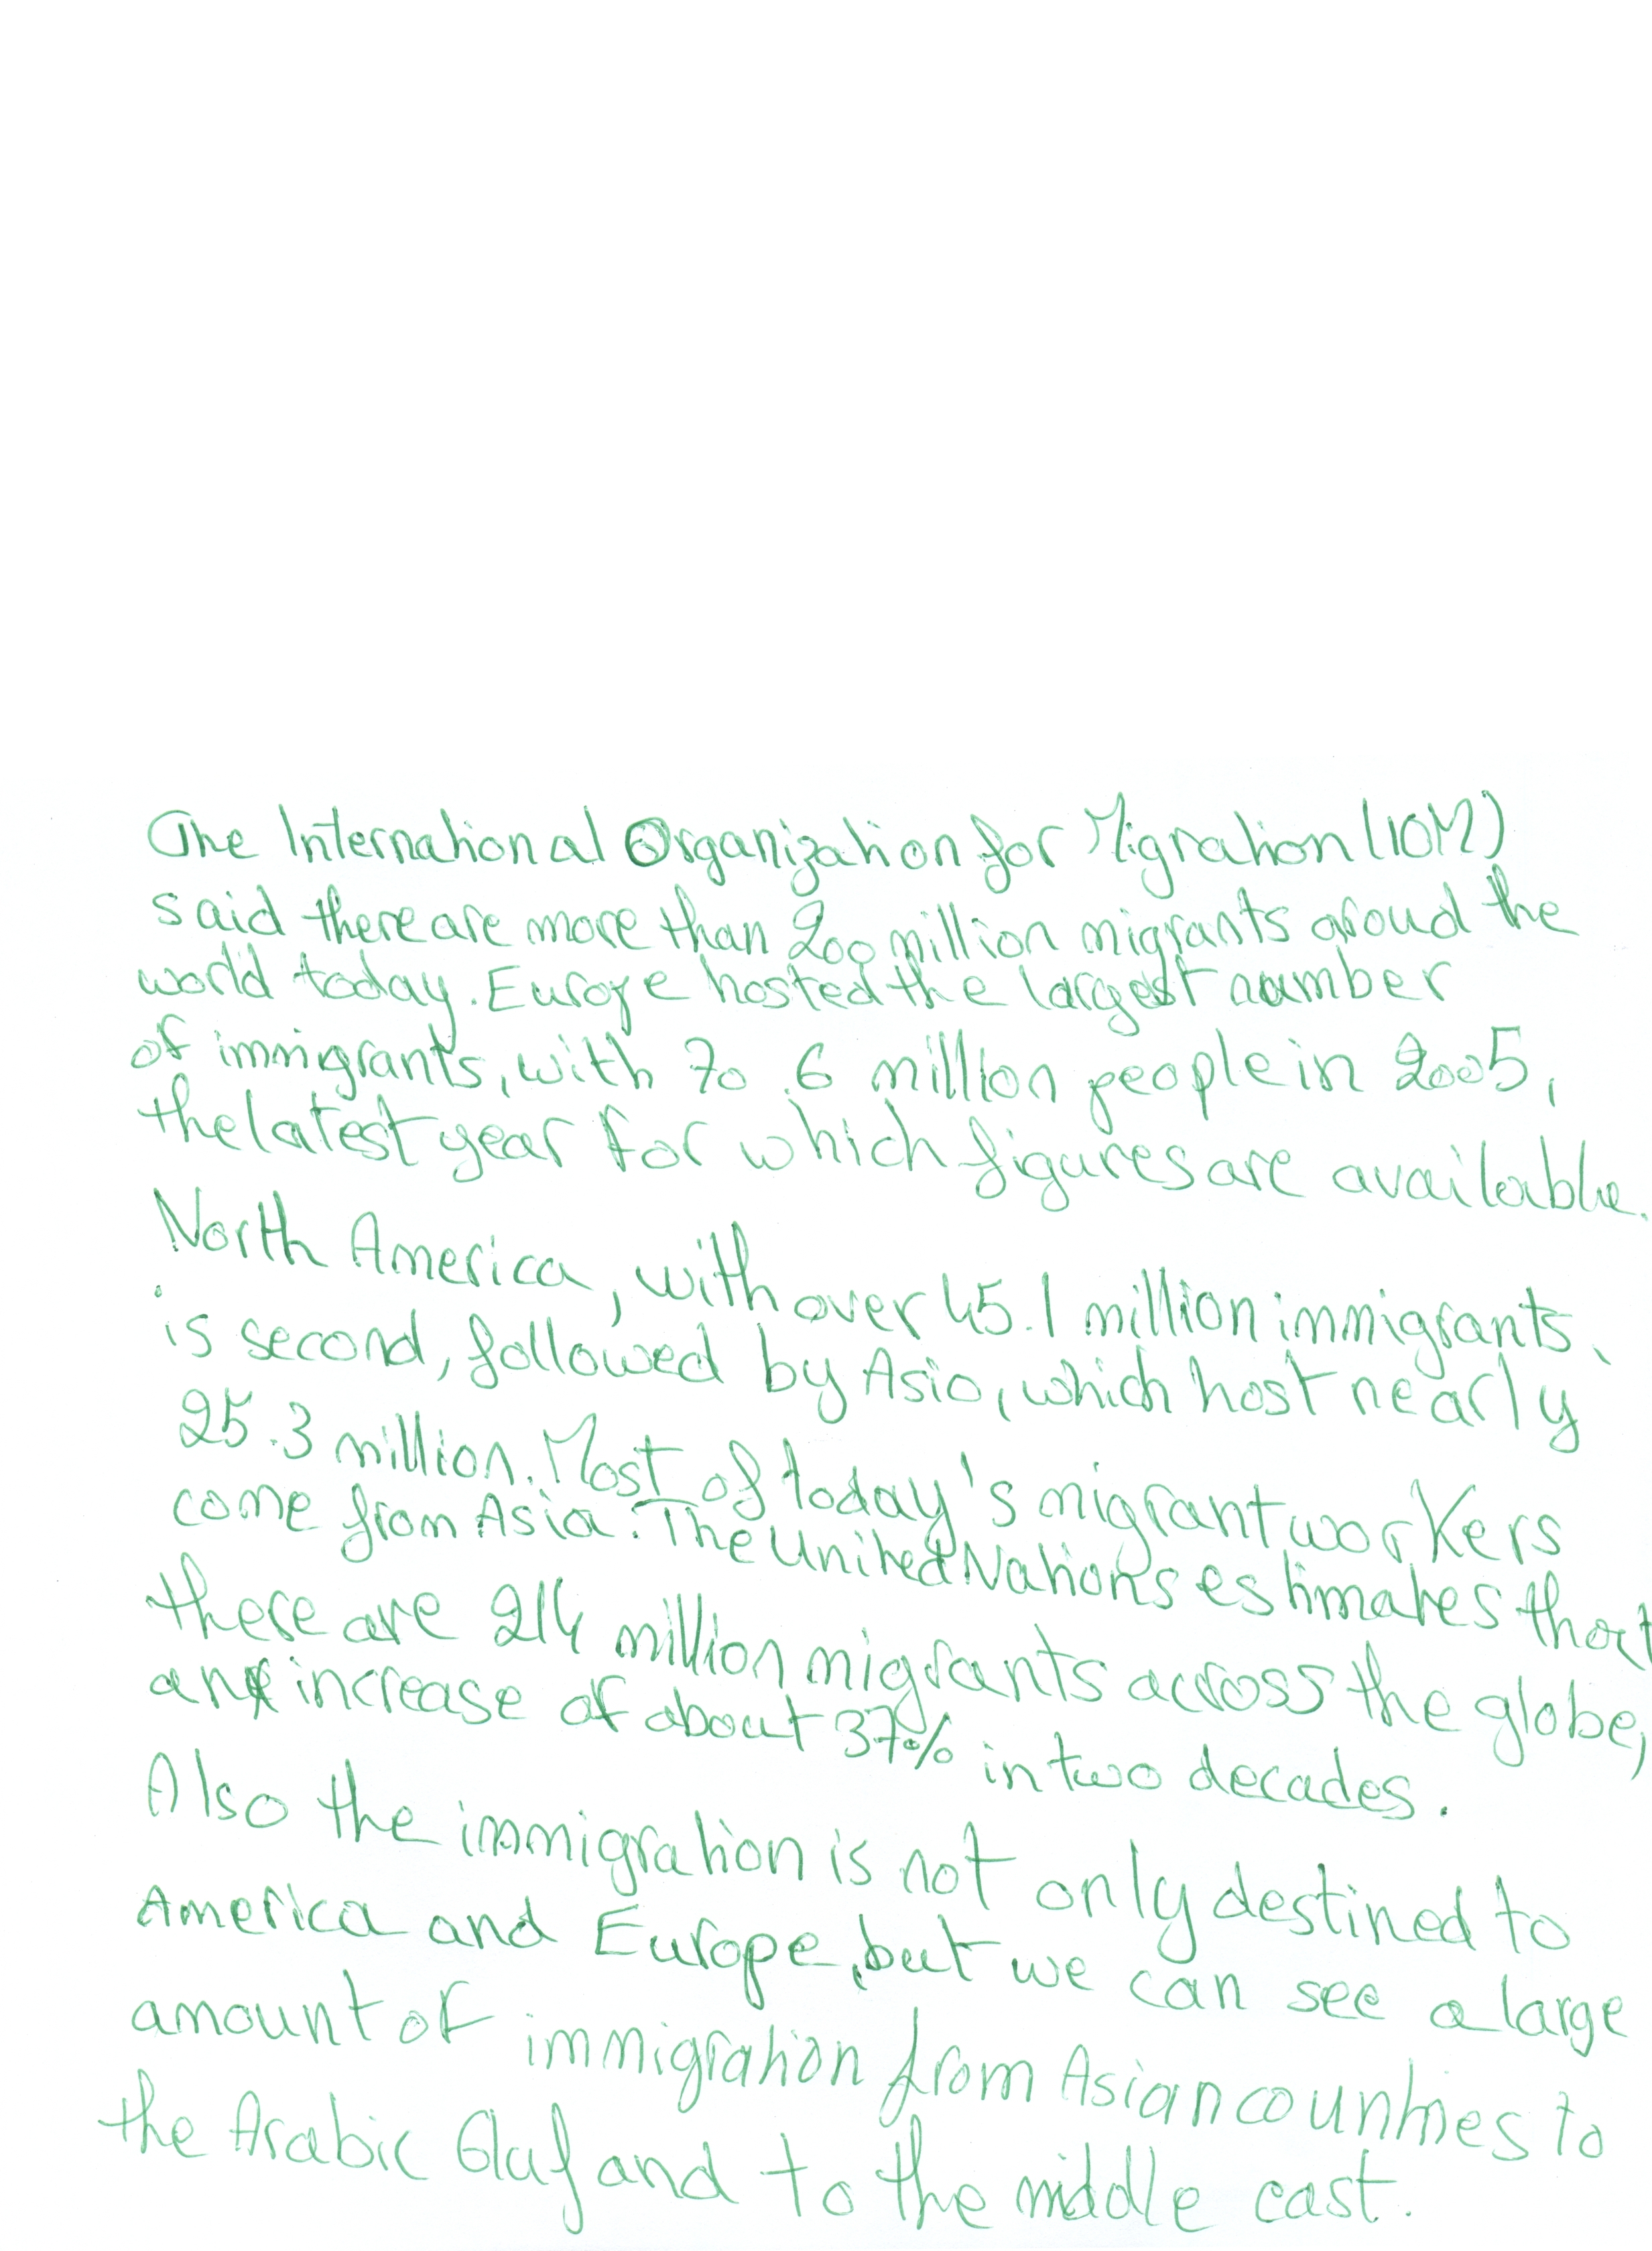 The International Organization for Migration (IOM)
said there are more than 200 million migrants aroud the
world today. Europe hosted the largest number
of immigrants, with 70.6 million people in 2005,
the latest year for which figures are available.
North America, with over 45.1 million immigrants,
is second, followed by Asia, which host nearly
25.3 million. Most of today's migrant workers
come from Asia. The United Nations estimates that
there are 214 million migrants across the globe,
an increase of about 37% in two decades.
Also the immigration is not only destined to
America and Europe, but we can see a large
amount of immigration from Asian countries to
the Arabic Gluf and to the middle east.